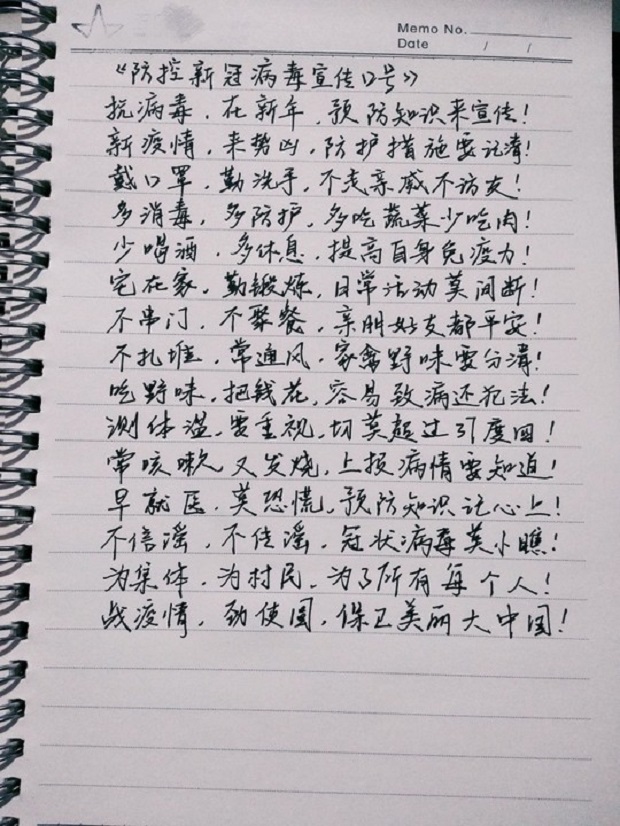 Memo No.
Date / /
《防控新冠病毒宣传口号》
抗病毒，在新年，预防知识来宣传！
新疫情，来势凶，防护措施要记清！
戴口罩，勤洗手，不走亲戚不访友！
多消毒，多防护，多吃蔬菜少吃肉！
少喝酒，多休息，提高自身免疫力！
宅在家，勤锻炼，日常活动莫间断！
不串门，不聚餐，亲朋好友都平安！
不扎堆，常通风，家禽野味要分清！
吃野味，把钱花，容易致病还犯法！
测体温，要重视，切莫超过37度回！
常咳嗽又发烧，上报病情要知道！
早就医，莫恐慌，预防知识记心上！
不信谣，不传谣，冠状病毒莫小瞧！
为集体，为村民，为了所有每个人！
战疫情，劲使国，保卫美丽大中国！